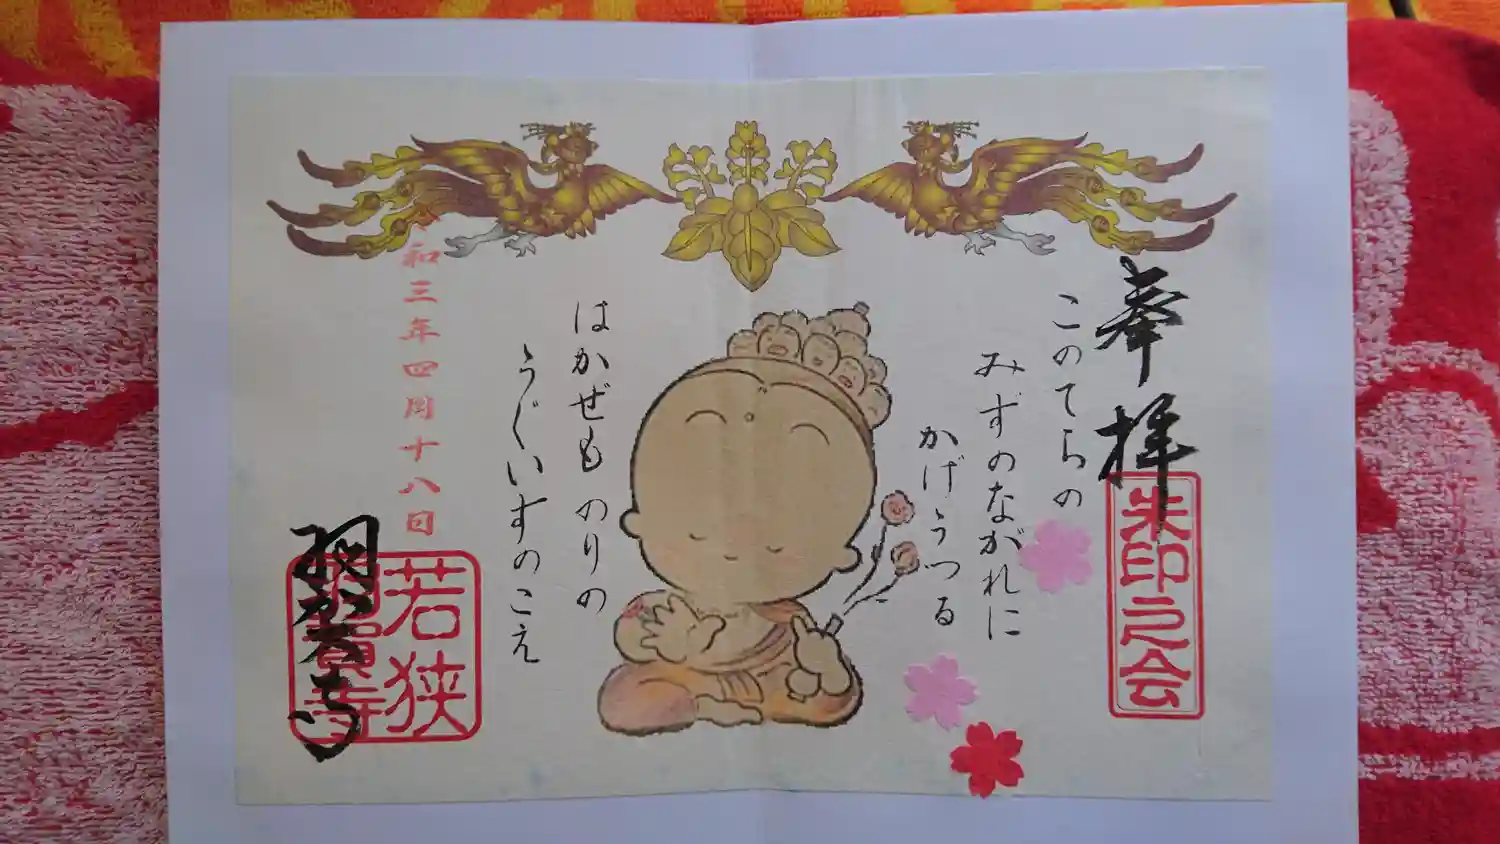 奉拝
朱印之会
このてらの
みずのながれに
かげうつる
はかぜも のりの
うぐいすのこえ
令和三年四月十八日
若狭
羽賀寺
羽賀寺